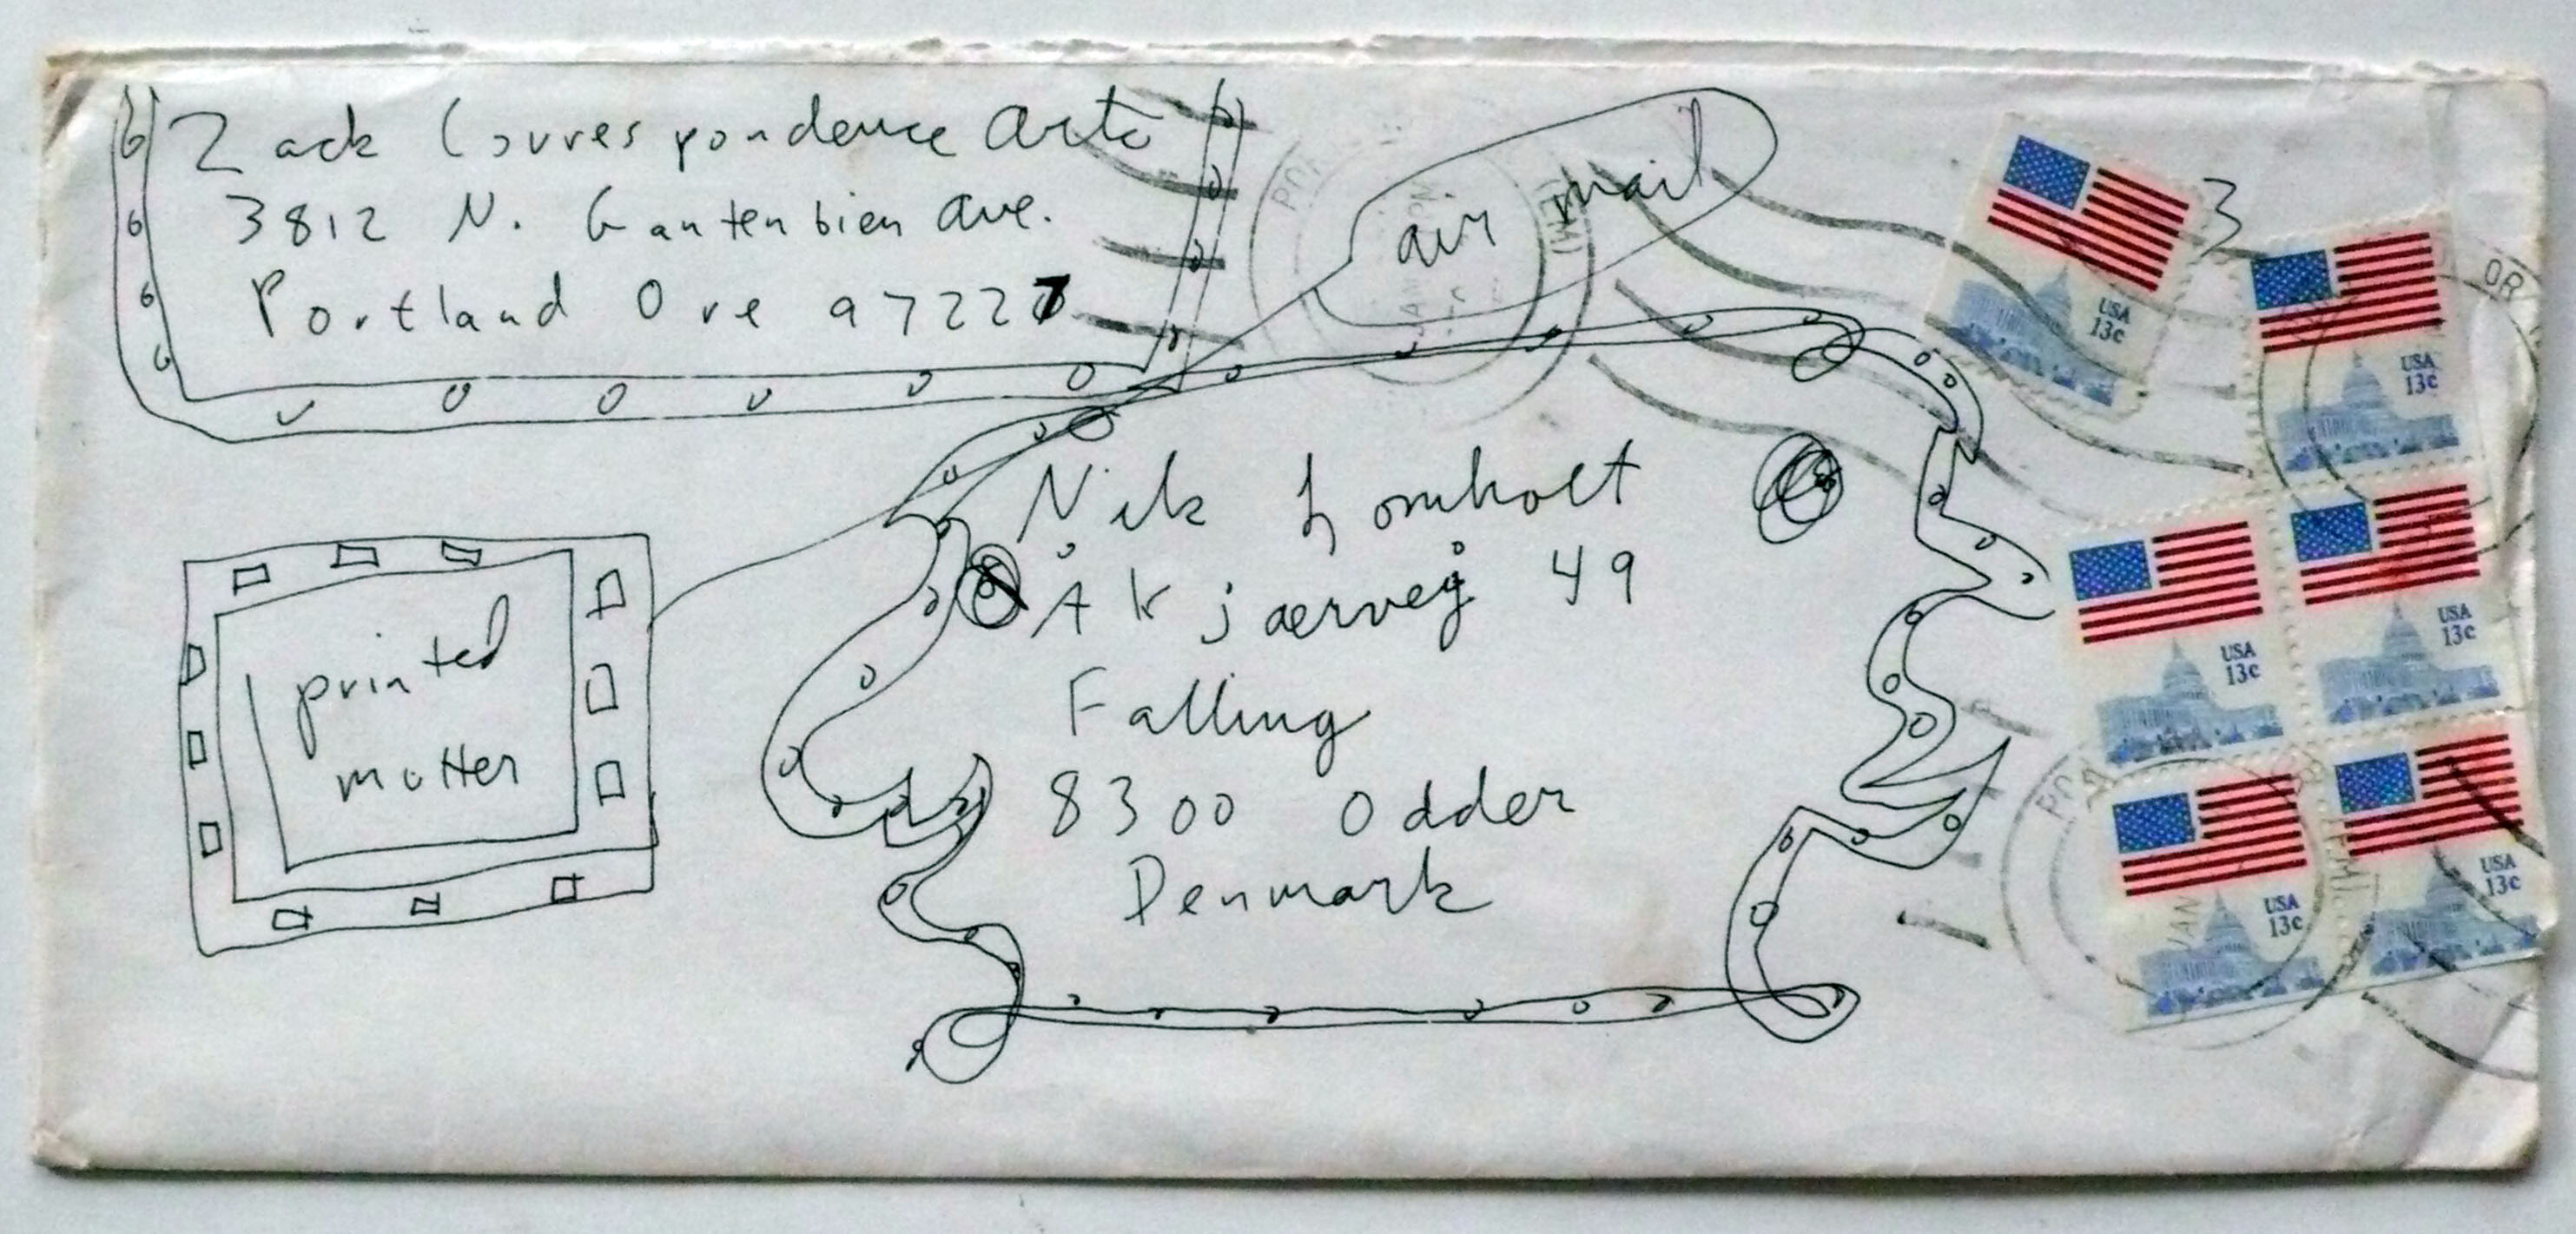 Zack Correspondence Arts
3812 N. Gantenbien Ave.
Portland Ore 97227
air mail
3
Nils Lomholt
Åkjaervej 49
Falling
8300 Odder
Denmark
printed
matter
USA
13c
USA
13c
USA
13c
USA
13c
USA
13c
USA
13c
JAN
PM
OR
JAN